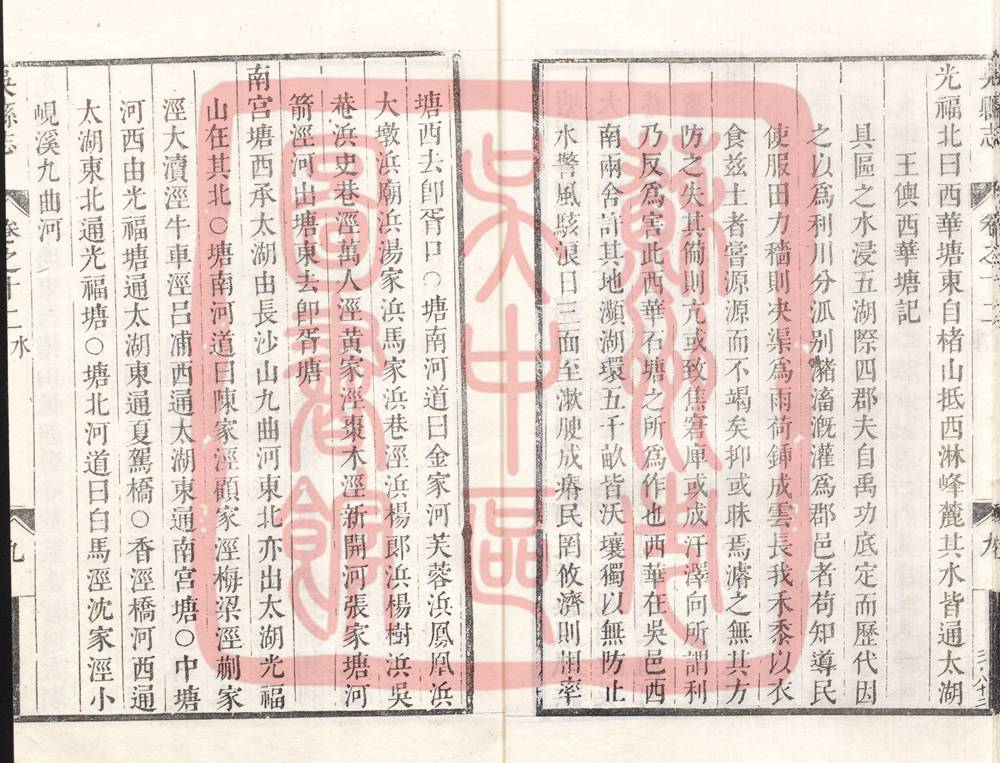 光福北曰西華塘東自楮山抵西淋峰麓其水皆通太湖
王㒜西華塘記
具區之水浸五湖際四郡夫自禹功底定而歷代因
之以爲利川分泒别豬滀漑灌爲郡邑者苟知導民
使服田力穡則决渠爲雨荷鍤成雲長我禾黍以衣
食兹土者甞源源而不竭矣抑或昧焉濬之無其方
防之失其備則亢或致焦窘庳或成汙澤向所謂利
乃反爲害此西華石塘之所爲作也西華在吳邑西
南兩舍許其地瀕湖環五千畝皆沃壤獨以無防止
水警風駭浪日三面至漱駛成瘠民罔攸濟則相率
吳縣志
塘西去卽胥口○塘南河道曰金家河芙蓉浜鳳凰浜
大墩浜廟浜湯家浜馬家浜巷涇浜楊郞浜楊樹浜吳
巷浜史巷涇萬人涇黃家涇棗木涇新開河張家塘河
箭涇河出塘東去卽胥塘
南宮塘西承太湖由長沙山九曲河東北亦出太湖光福
山在其北○塘南河道曰陳家涇顧家涇梅梁涇蒯家
涇大瀆涇牛車涇呂浦西通太湖東通南宮塘○中塘
河西由光福塘通太湖東通夏駕橋○香涇橋河西通
太湖東北通光福塘○塘北河道曰白馬涇沈家涇小
峴溪九曲河
吳縣志
卷之十二 水
九
蘇州市
吳中區
圖書館